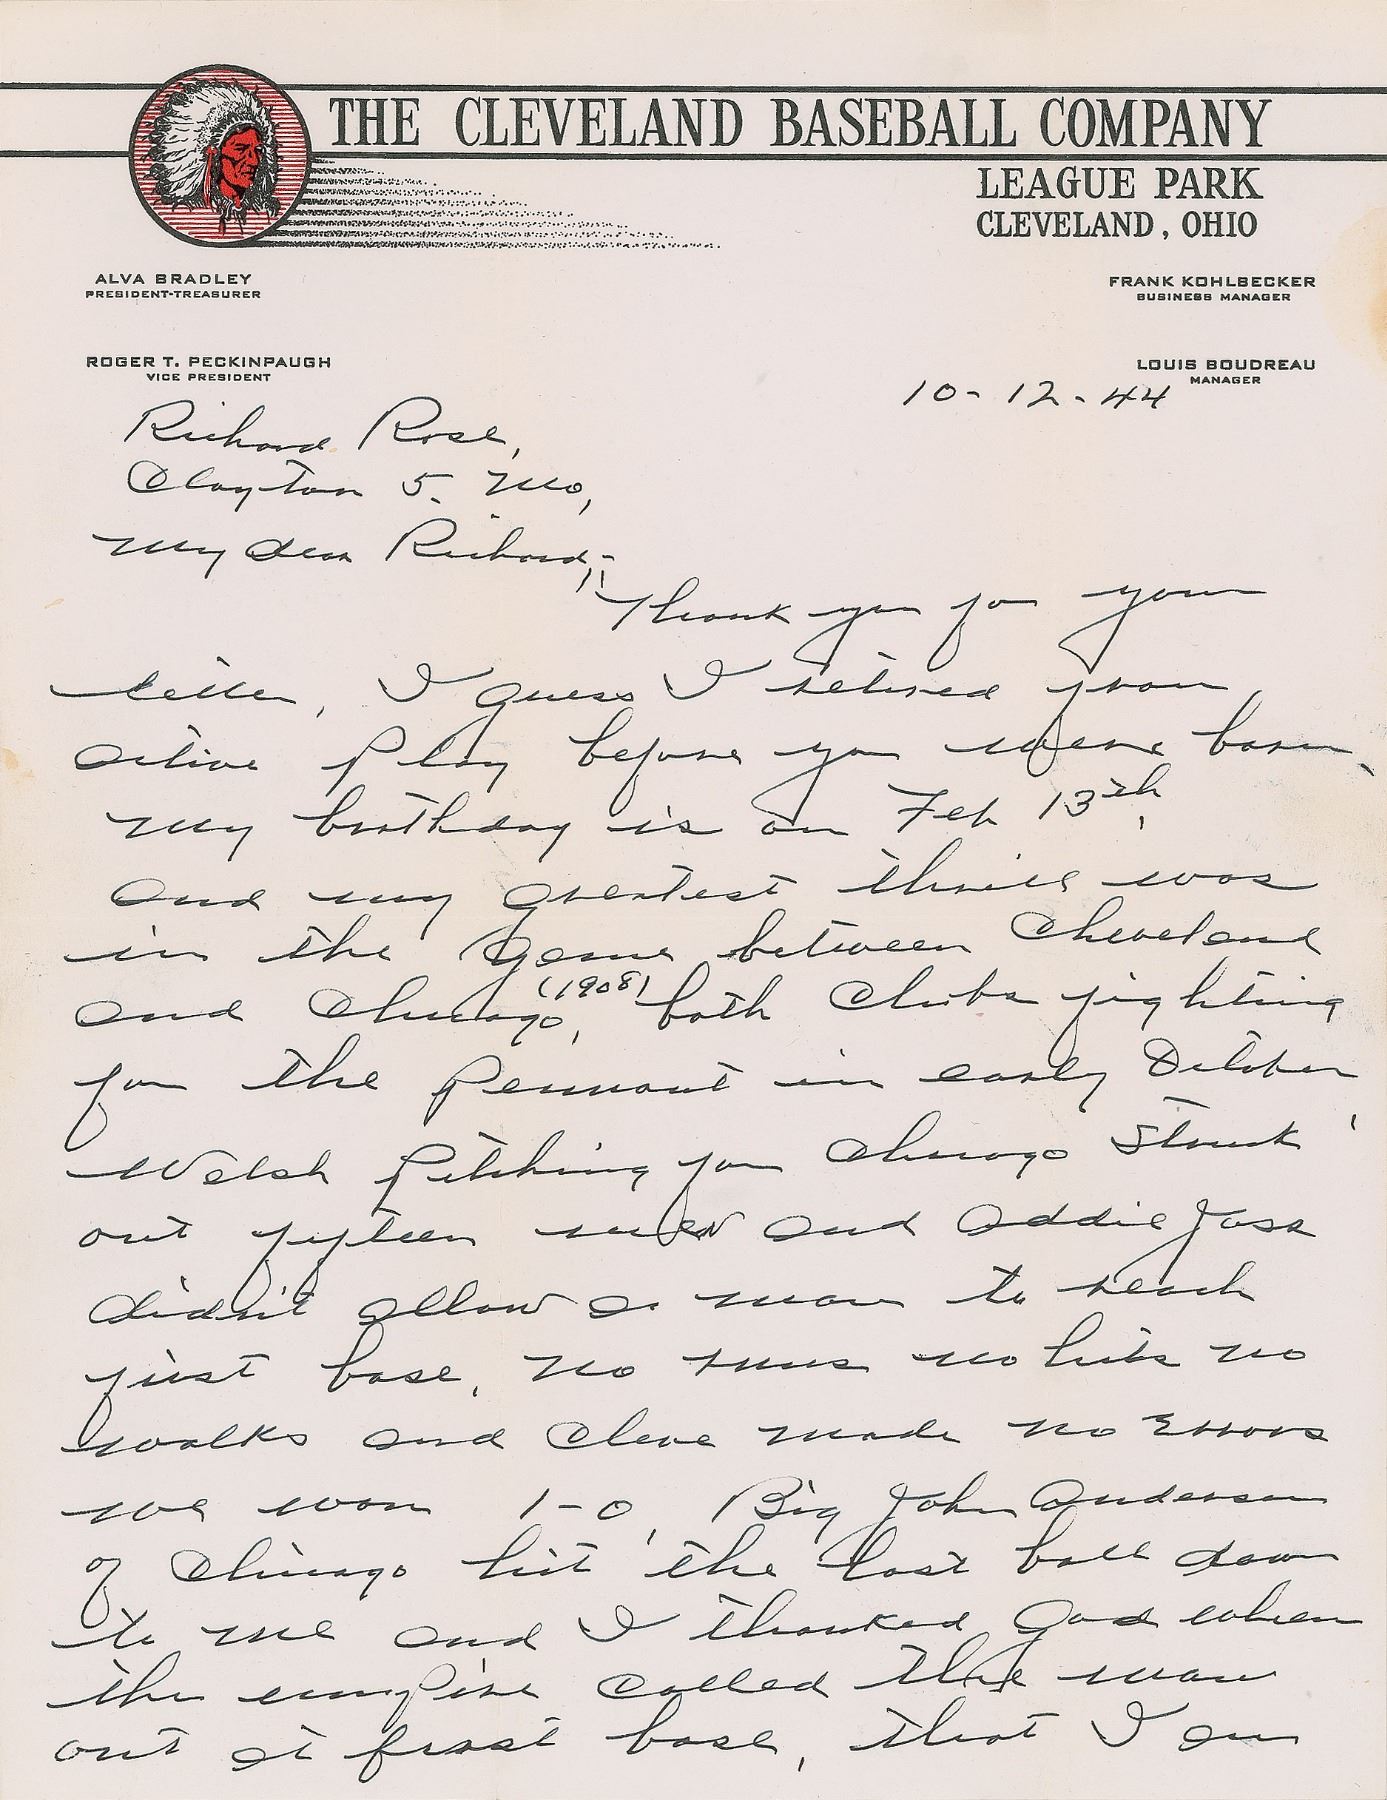 THE CLEVELAND BASEBALL COMPANY
LEAGUE PARK
CLEVELAND, OHIO
ALVA BRADLEY
PRESIDENT-TREASURER
FRANK KOHLBECKER
BUSINESS MANAGER
ROGER T. PECKINPAUGH
VICE PRESIDENT
LOUIS BOUDREAU
MANAGER
10-12-44
Richard Rose,
Clayton 5. Mo,
My dear Richard,;-
Thank you for your
letter, I guess I retired from
active play before you were born.
My birthday is on Feb 13th,
and my greatest thrill was
in the game between Cleveland
and Chicago, (1908) both Clubs fighting
for the Pennant in early October,
Welsh Pitching for Chicago Struck
out fifteen men and Addie Joss
didn't allow a man to reach
first base, no runs no hits no
walks and Cleve made no Errors
we won 1-0, Big John Anderson
of Chicago hit the last ball down
to me and I thanked God when
the umpire called the man
out at first base, that I am